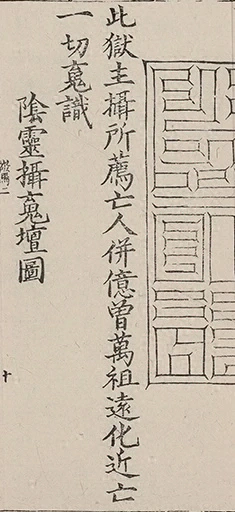 此獄主攝所薦亡人併億曾萬祖遠化近亡
一切䰟識
陰靈攝䰟壇圖
十